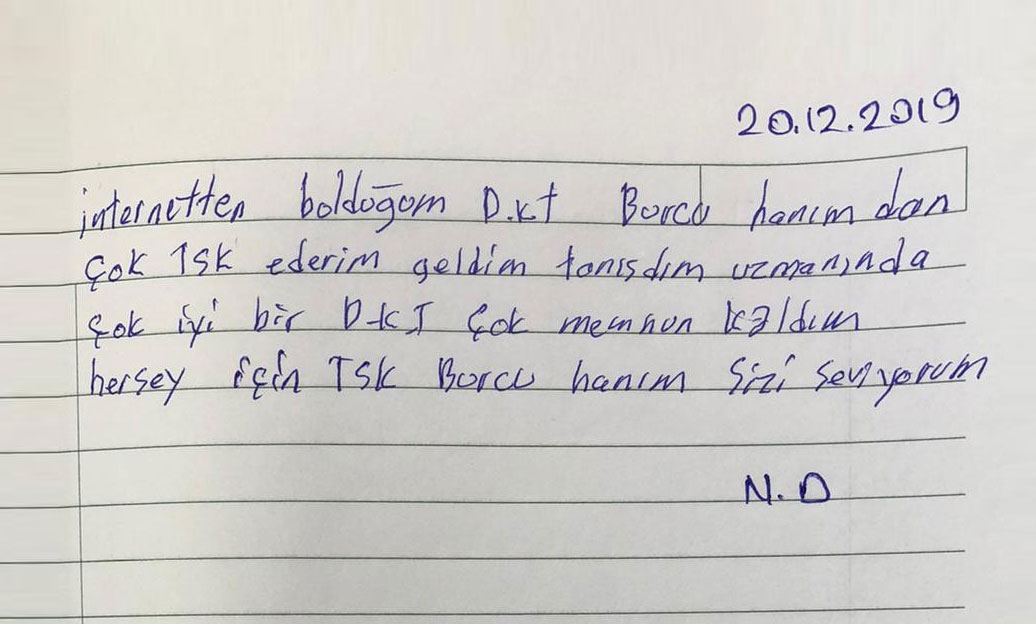 20.12.2019
internetten bolduğum D.kt Burcu hanım dan
çok TSK ederim geldim tanısdım uzmanında
çok iyi bir D.kT çok memnun kaldım
hersey için TSK Burcu hanım Sizi seviyorum
N.D